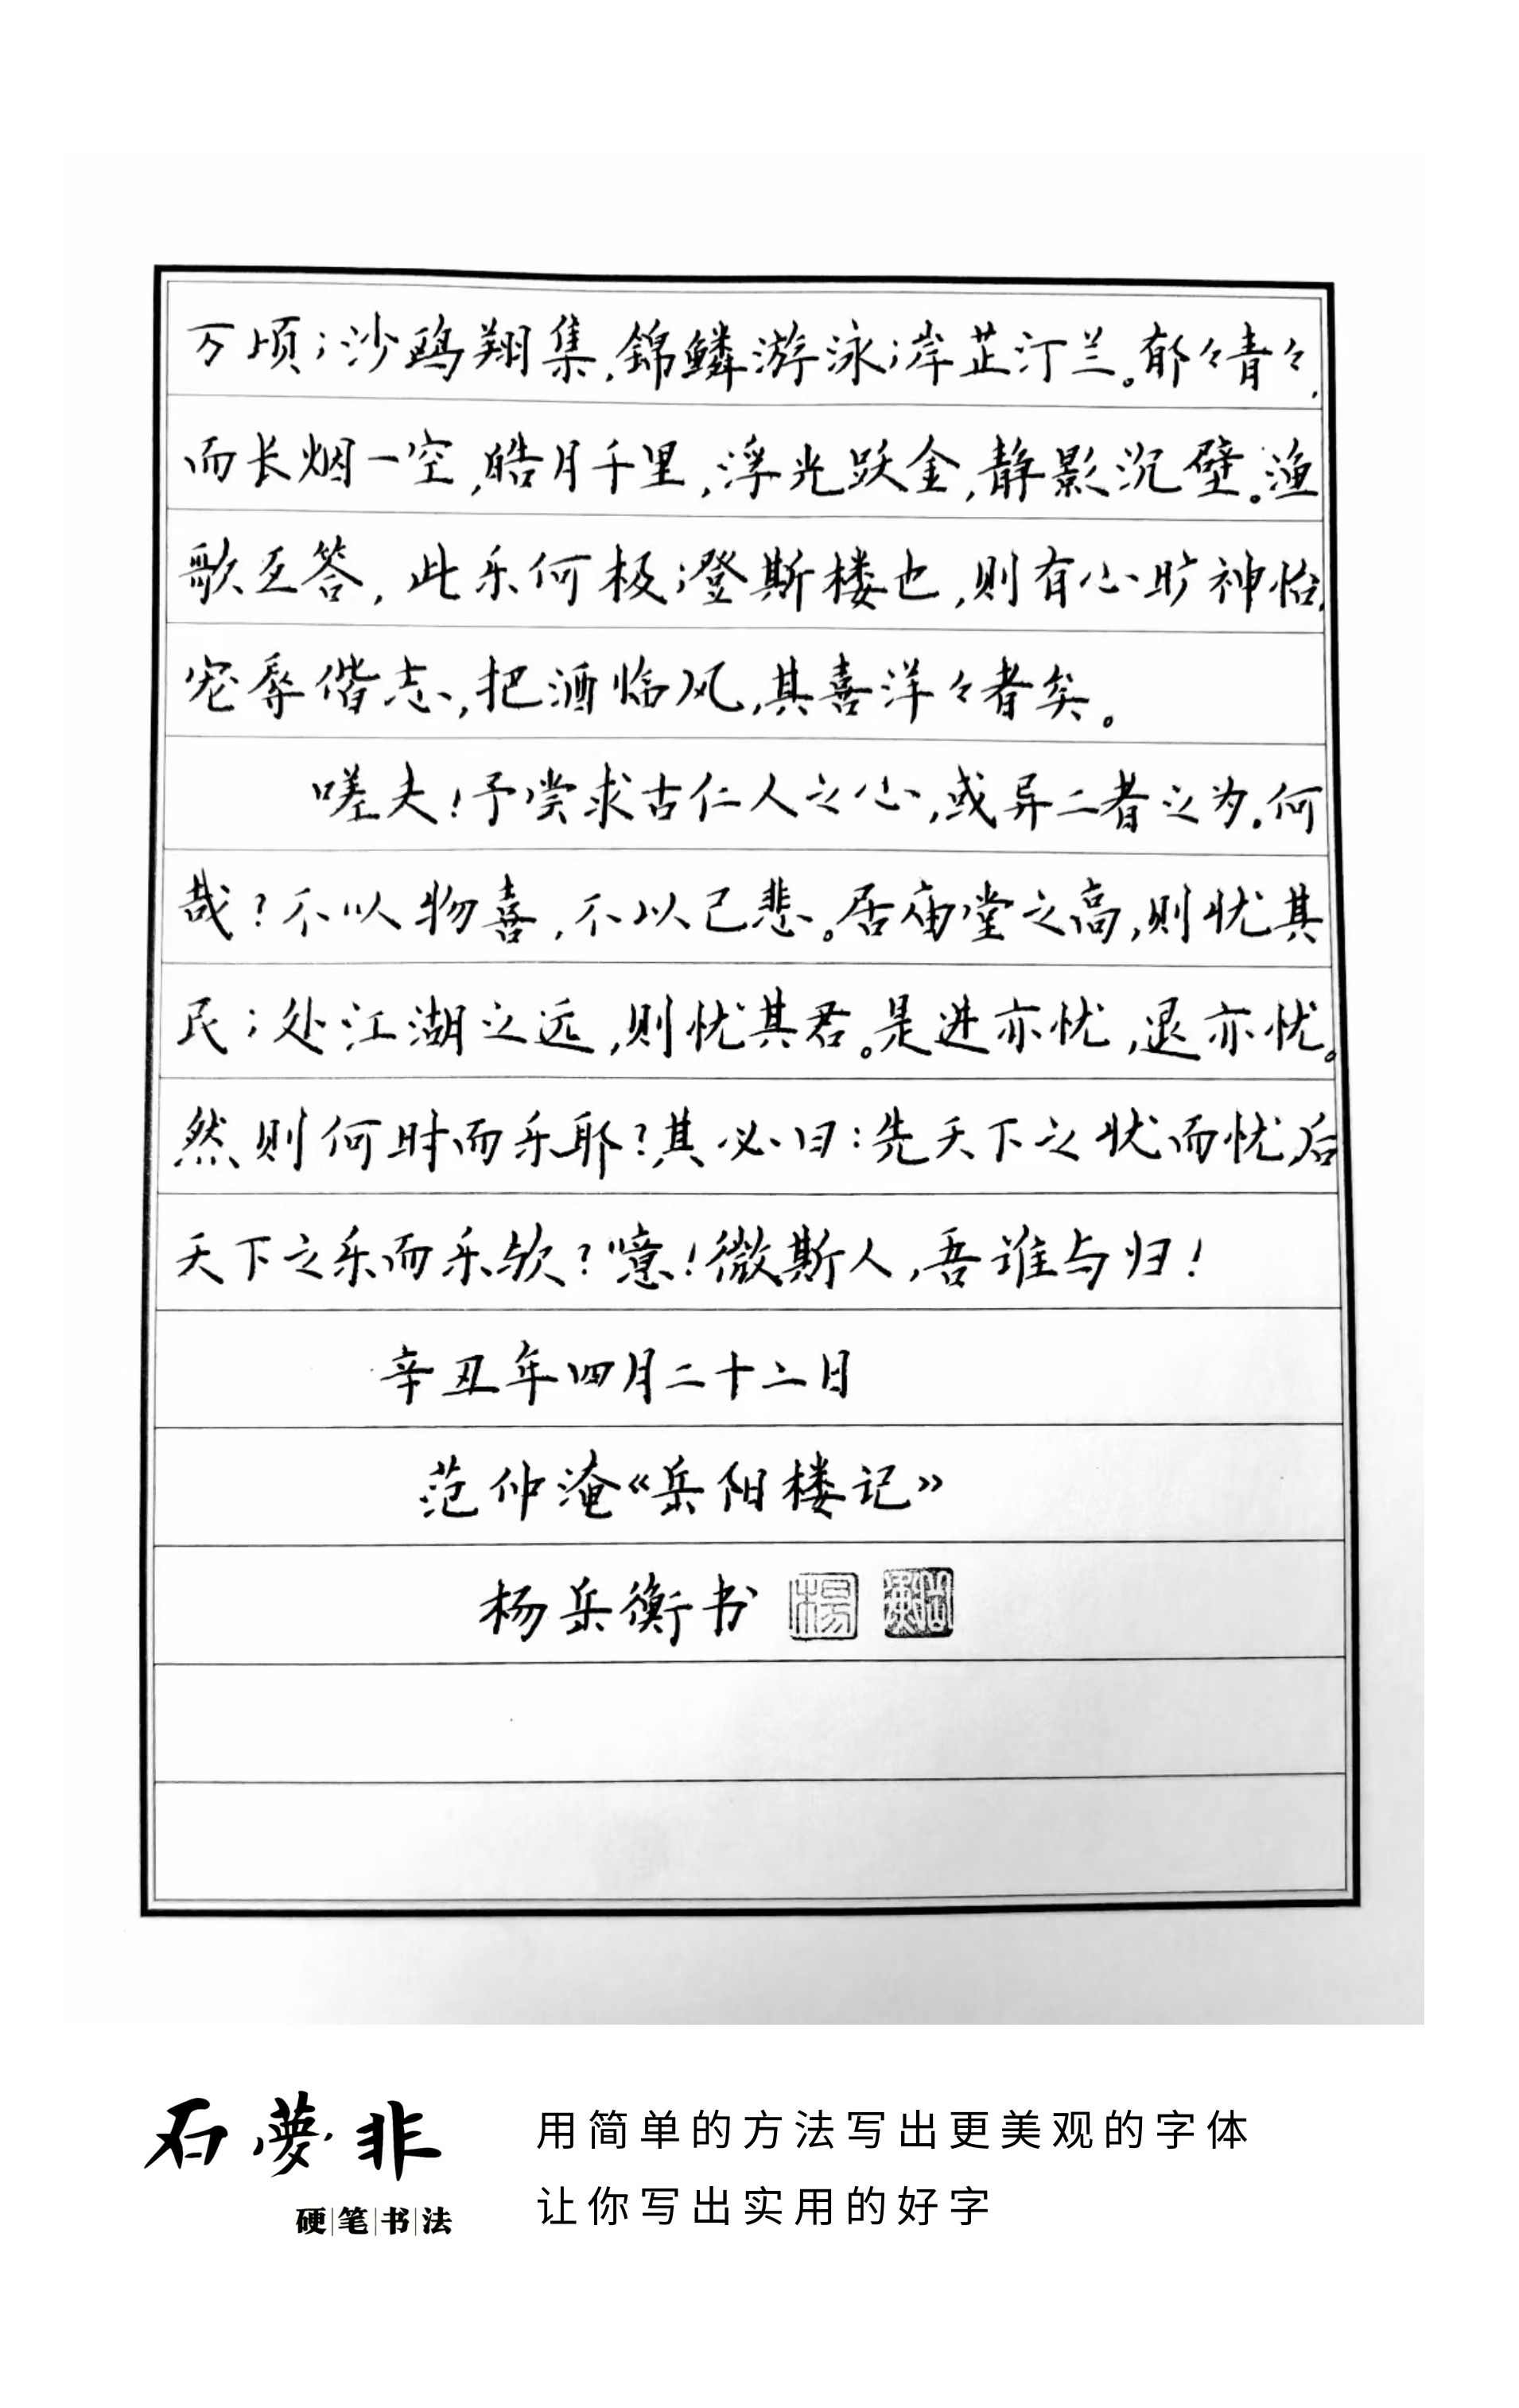 万顷；沙鸥翔集，錦鳞游泳；岸芷汀兰。郁々青々，
而长烟一空，皓月千里，浮光跃金，静影沉璧。渔
歌互答，此乐何极；登斯楼也，则有心旷神怡，
宠辱偕志，把酒临风，其喜洋々者矣。
嗟夫！予尝求古仁人之心，或异二者之为。何
哉？不以物喜，不以己悲。居庙堂之高，则忧其
民；处江湖之远，则忧其君。是进亦忧，退亦忧。
然则何时而乐耶？其必曰：先天下之忧而忧，后
天下之乐而乐欤？噫！微斯人，吾谁与归！
辛丑年四月二十二日
范仲淹《岳阳楼记》
杨岳衡书 楊 岳衡
石夢非
硬笔书法
用简单的方法写出更美观的字体
让你写出实用的好字